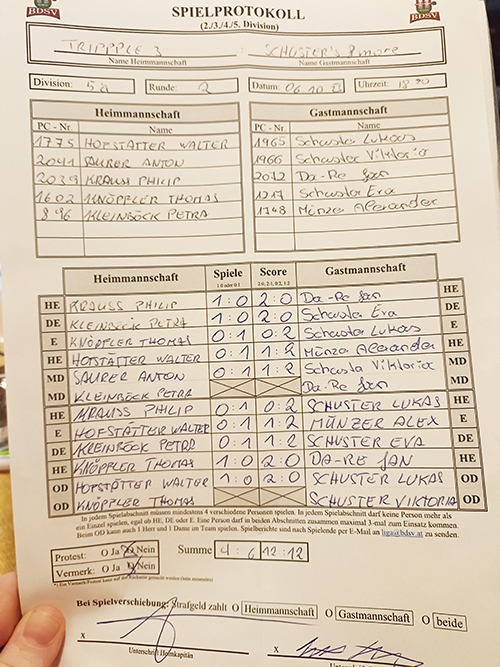 BDSV BDSV
SPIELPROTOKOLL
(2./3./4./5. Division)
TRIPPPLE 3 : SCHUSTER'S &more
Name Heimmannschaft Name Gastmannschaft
Division: 5a Runde: 2 Datum: 06.10.23 Uhrzeit: 18:30
Heimmannschaft Gastmannschaft
PC - Nr. Name PC - Nr. Name
1775 HOFSTÄTTER WALTER 1965 Schuster Lukas
2041 SAURER ANTON 1966 Schuster Viktoria
2039 KRAUSS PHILIP 2012 Da-Re Jan
1602 KNÖPPLER THOMAS 1217 Schuster Eva
896 KLEINBÖCK PETRA 1748 Münzer Alexander
Heimmannschaft Spiele Score Gastmannschaft
1:0 oder 0:1 2:0, 2:1, 0:2, 1:2
HE KRAUSS PHILIP 1:0 2:0 Da-Re Jan HE
DE KLEINBÖCK PETRA 1:0 2:0 Schuster Eva DE
E KNÖPFLER THOMAS 0:1 0:2 Schuster Lukas E
HE HOFSTÄTTER WALTER 0:1 1:2 Münzer Alexander HE
MD SAURER ANTON 0:1 1:2 Schuster Viktoria MD
MD KLEINBÖCK PETRA Da-Re Jan MD
HE KRAUSS PHILIP 0:1 0:2 SCHUSTER LUKAS HE
E HOFSTÄTTER WALTER 0:1 1:2 MÜNZER ALEX E
DE KLEINBÖCK PETRA 0:1 1:2 SCHUSTER EVA DE
HE KNÖPPLER THOMAS 1:0 2:0 DA-RE JAN HE
OD HOFSTÄTTER WALTER 1:0 2:0 SCHUSTER LUKAS OD
OD KNÖPPLER THOMAS SCHUSTER VIKTORIA OD
In jedem Spielabschnitt müssen mindestens 4 verschiedene Personen spielen. In jedem Spielabschnitt darf keine Person mehr als
ein Einzel spielen, egal ob HE, DE oder E. Eine Person darf in beiden Abschnitten zusammen maximal 3-mal zum Einsatz kommen.
Beim OD kann auch 1 Herr und 1 Dame im Team spielen. Spielberichte sind nach Spielende per E-Mail an liga@bdsv.at zu senden.
Protest: O Ja O Nein Summe 4:6 12:12
Vermerk: O Ja O Nein
*) Ein Vermerk/Protest kann auf der Rückseite gemacht werden
Bei Spielverschiebung: Strafgeld zahlt O Heimmannschaft O Gastmannschaft O beide
x x
Unterschrift Heimkapitän